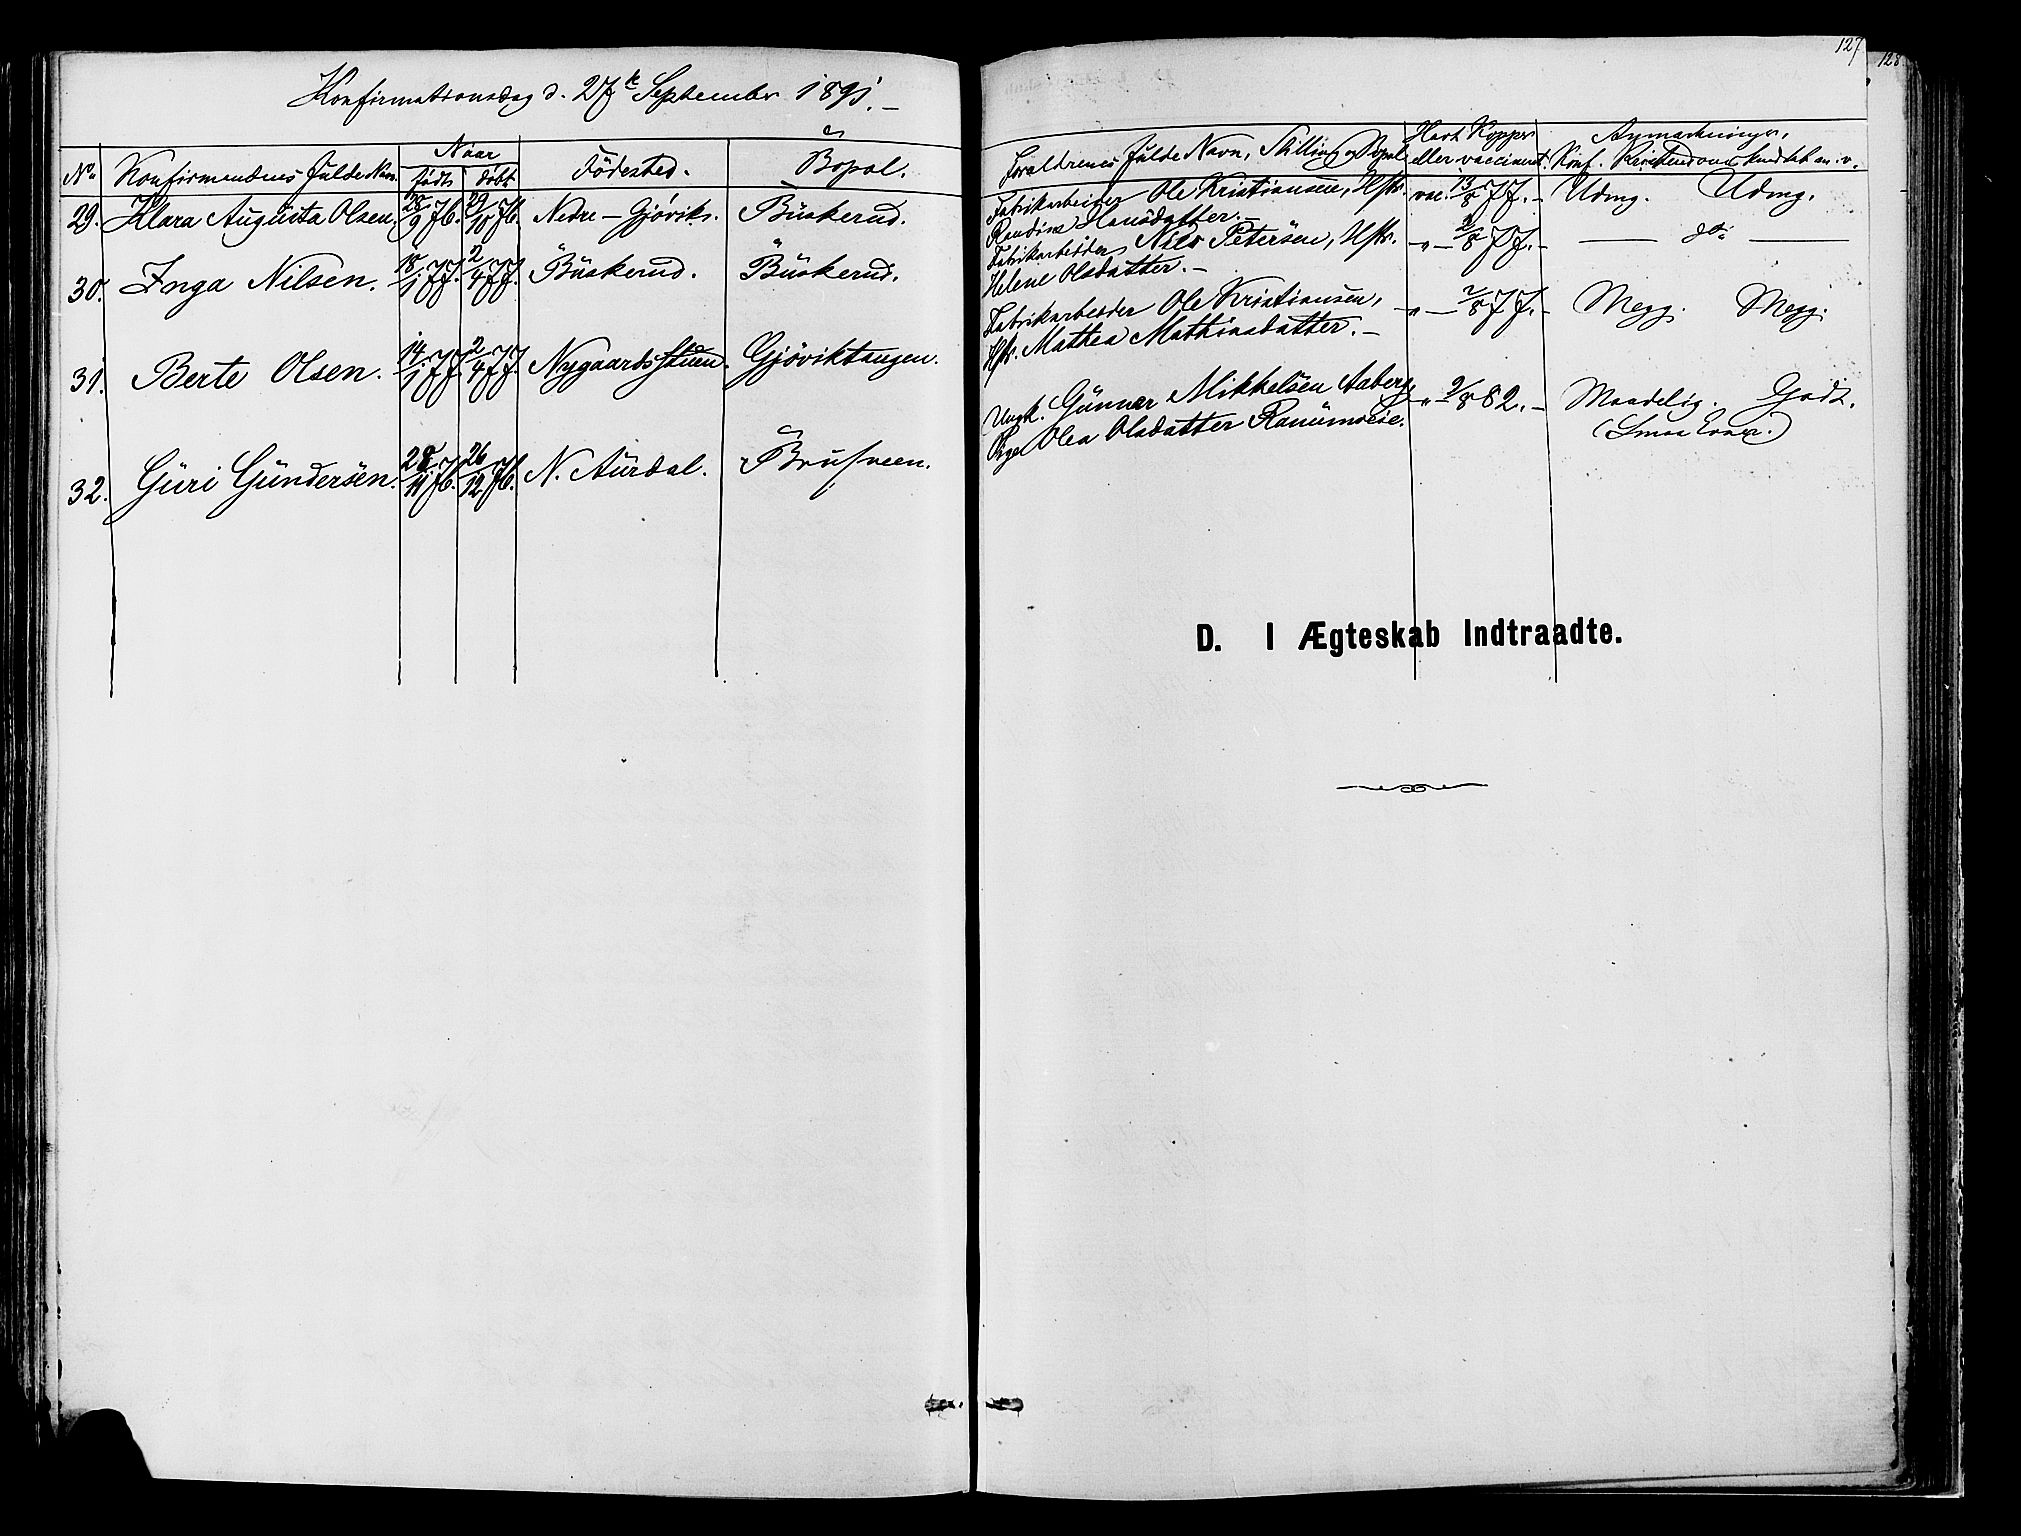 127
128
Konfirmationsdag d. 27de September 1891.
No Konfirmandens fulde Navn. Naar født døbt Fødested. Bopæl.
Forældrenes fulde Navn, Stilling og Bopæl Havt Kopper eller vaccineret. Anmærkninger.
Konf. Kristendomskundskab m. v.
29. Klara Augusta Olsen. 28/9 76. 29/10 76. Nedre-Gjøviks. Buskerud.
Fabrikarbeider Ole Kristiansen, Hstr. vac. 13/8 77. Udmg. Udmg.
Randine Hansdatter.
30. Inga Nilsen. 18/1 77. 2/4 77. Buskerud. Buskerud.
Fabrikarbeider Nils Petersen, Hstr. -„- 2/8 77. do
Helene Olsdatter.
31. Berte Olsen. 14/1 77. 2/4 77. Nygaardsstuen. Gjøviktangen.
Fabrikarbeider Ole Kristiansen, -„- 2/8 77. Megg. Megg.
Hstr. Mathea Mathiasdatter.
32. Guri Gundersen. 28/11 76. 26/12 76. N. Aurdal. Brusveen.
Ungk. Gunnar Mikkelsen Aaberg -„- 9/8 82. Maadelig. Godt.
Pige Olea Olsdatter Ranumseie.
D. I Ægteskab Indtraadte.